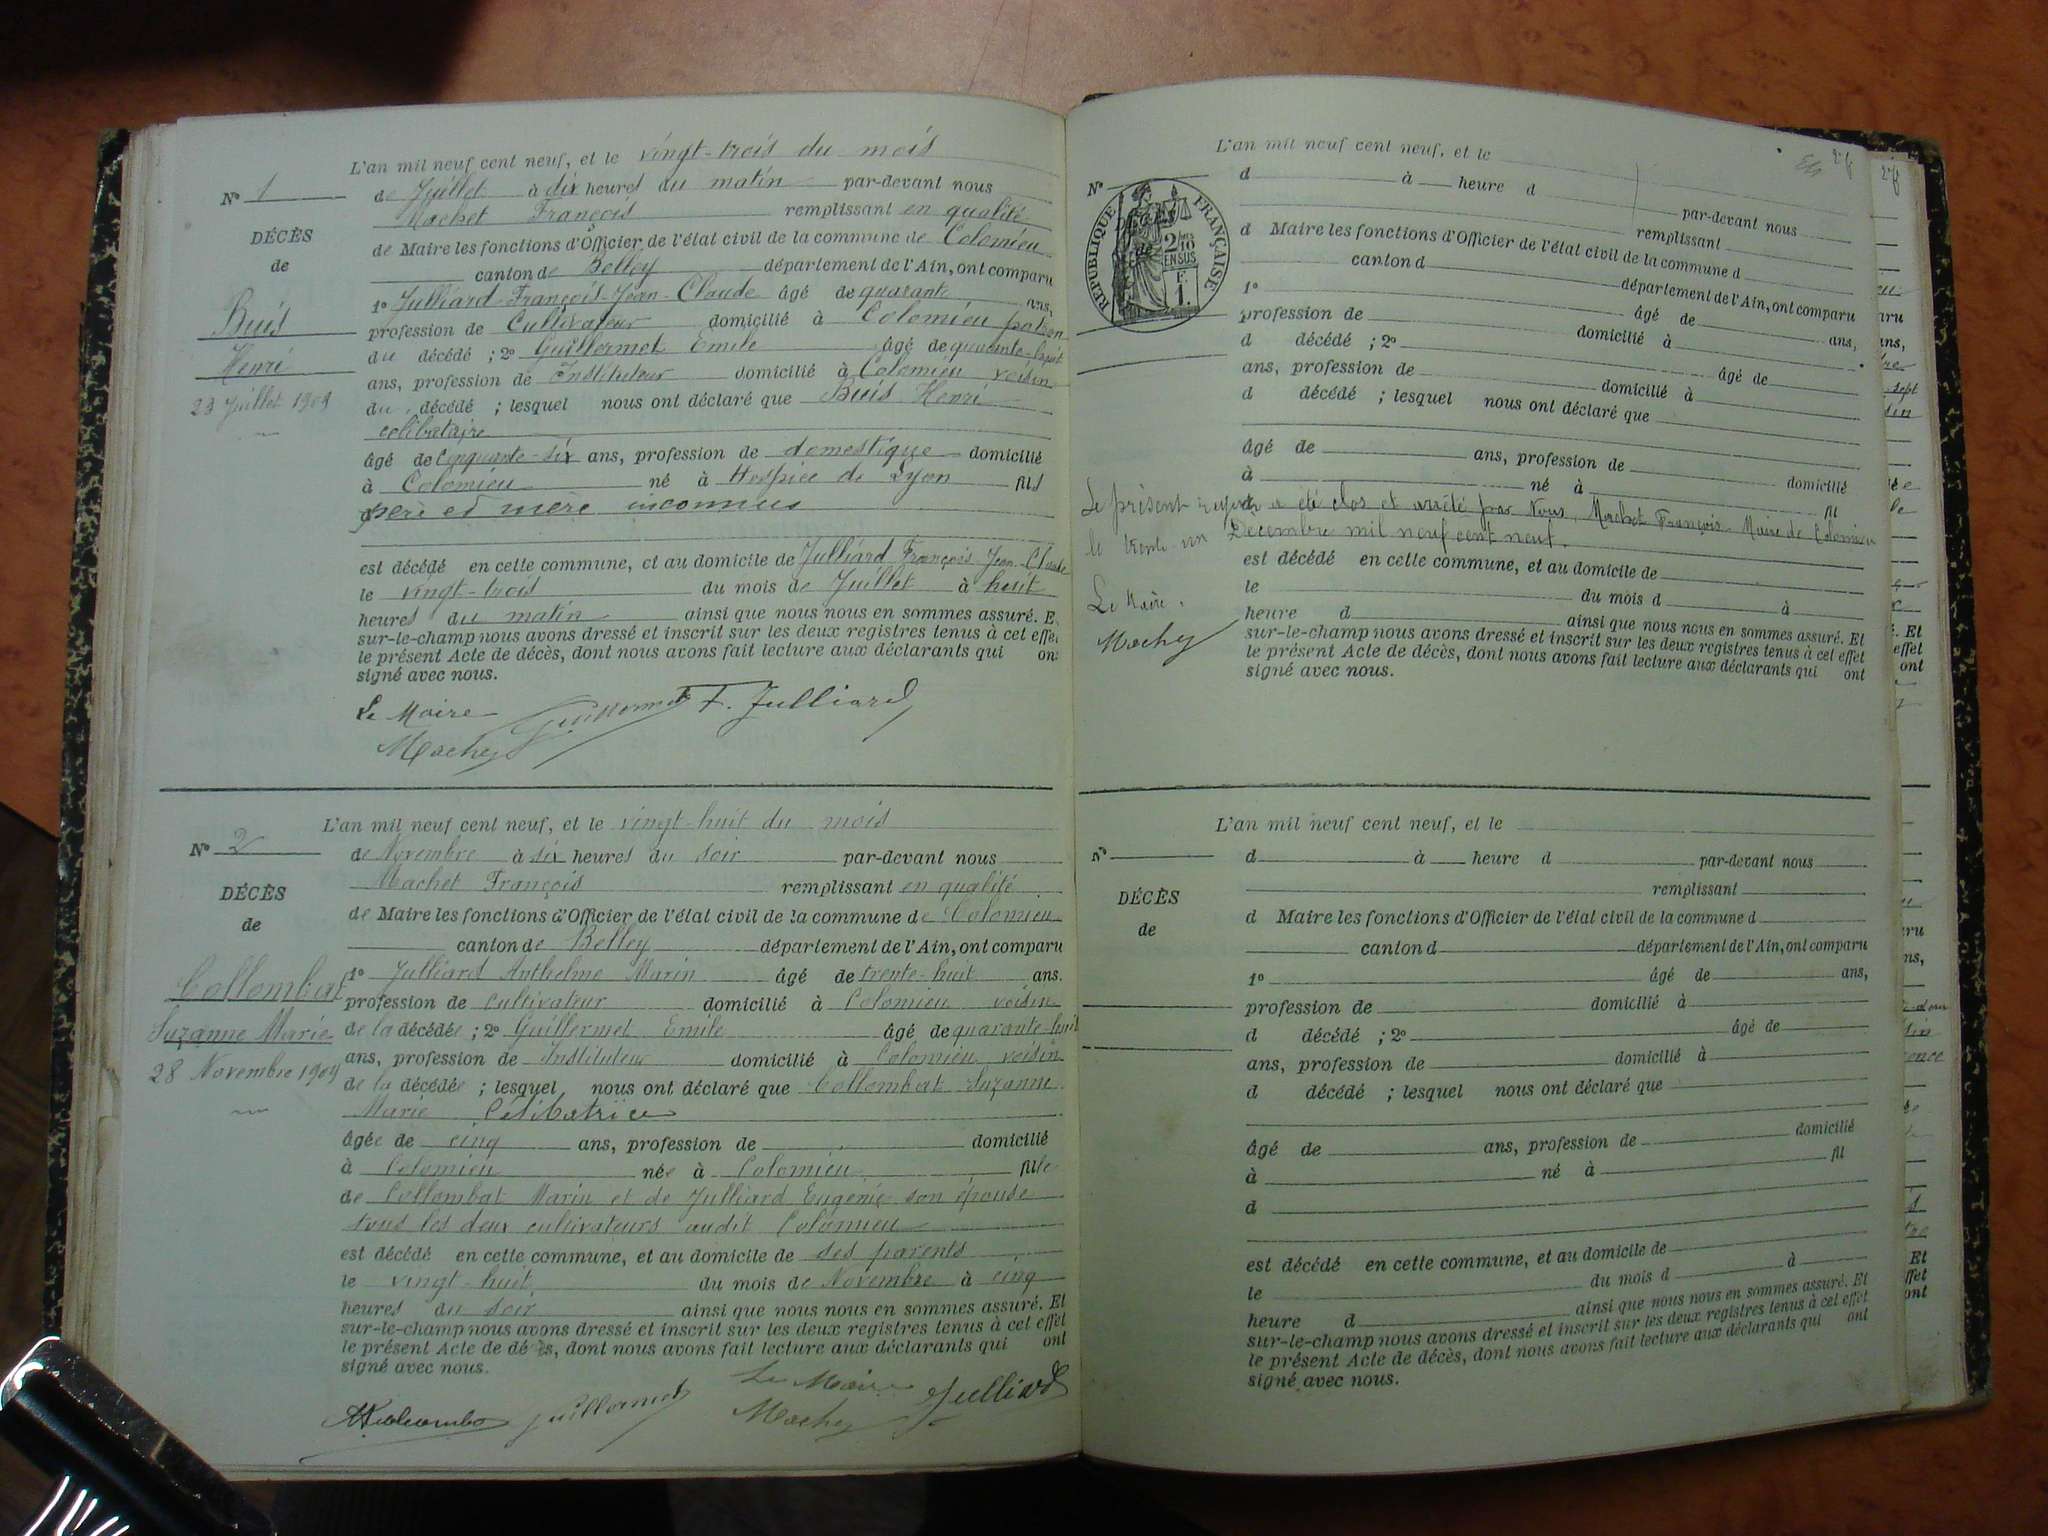 L'an mil neuf cent neuf, et le vingt-trois du mois
N° 1
de Juillet à dix heures du matin par-devant nous
Machet François remplissant en qualité
DÉCÈS
de Maire les fonctions d'Officier de l'état civil de la commune de Colomieu
de
canton de Belley département de l'Ain, ont comparu
1° Julliard François Jean-Claude âgé de quarante ans,
Buis
profession de Cultivateur domicilié à Colomieu patron
du décédé ; 2° Guillermet Emile âgé de quarante-huit
Henri
ans, profession de Instituteur domicilié à Colomieu voisin
23 Juillet 1909
du décédé ; lesquel nous ont déclaré que Buis Henri
célibataire
âgé de cinquante-six ans, profession de domestique domicilié
à Colomieu né à Hospice de Lyon fils
père et mère inconnus
est décédé en cette commune, et au domicile de Julliard François Jean-Claude
le vingt-trois du mois de Juillet à huit
heures du matin ainsi que nous nous en sommes assuré. E
sur-le-champ nous avons dressé et inscrit sur les deux registres tenus à cet effe
le présent Acte de décès, dont nous avons fait lecture aux déclarants qui on
signé avec nous.
Le Maire Guillermet F. Julliard
Machet
L'an mil neuf cent neuf, et le vingt-huit du mois
N° 2
de Novembre à six heures du soir par-devant nous
Machet François remplissant en qualité
DÉCÈS
de Maire les fonctions d'Officier de l'état civil de la commune de Colomieu
de
canton de Belley département de l'Ain, ont comparu
1° Julliard Anthelme Marin âgé de trente-huit ans.
Collombat
profession de cultivateur domicilié à Colomieu voisin
Suzanne Marie
de la décédée ; 2° Guillermet Emile âgé de quarante-huit
ans, profession de Instituteur domicilié à Colomieu voisin
28 Novembre 1909
de la décédée ; lesquel nous ont déclaré que Collombat Suzanne
Marie Célibatrice
âgée de cinq ans, profession de domicilié
à Colomieu née à Colomieu fille
de Collombat Marin et de Julliard Eugenie son épouse
tous les deux cultivateurs audit Colomieu
est décédé en cette commune, et au domicile de ses parents
le vingt-huit du mois de Novembre à cinq
heures du soir ainsi que nous nous en sommes assuré. Et
sur-le-champ nous avons dressé et inscrit sur les deux registres tenus à cet effet
le présent Acte de décès, dont nous avons fait lecture aux déclarants qui ont
signé avec nous.
Guillermet Le Maire Julliard
Machet
L'an mil neuf cent neuf, et le
N°
d à heure d par-devant nous
RÉPUBLIQUE FRANÇAISE
2/10 EN SUS
F. 1.
remplissant
d Maire les fonctions d'Officier de l'état civil de la commune d
canton d département de l'Ain, ont comparu
1° âgé de ans,
profession de domicilié à
d décédé ; 2° âgé de
ans, profession de domicilié à
d décédé ; lesquel nous ont déclaré que
âgé de ans, profession de domicilié
à né à fil
d
Le présent registre a été clos et arrêté par Nous, Machet François Maire de Colomieu
le trente-un Decembre mil neuf cent neuf.
est décédé en cette commune, et au domicile de
le du mois d à
Le Maire.
heure d ainsi que nous nous en sommes assuré. Et
Machet
sur-le-champ nous avons dressé et inscrit sur les deux registres tenus à cet effet
le présent Acte de décès, dont nous avons fait lecture aux déclarants qui ont
signé avec nous.
L'an mil neuf cent neuf, et le
N°
d à heure d par-devant nous
remplissant
DÉCÈS
d Maire les fonctions d'Officier de l'état civil de la commune d
de
canton d département de l'Ain, ont comparu
1° âgé de ans,
profession de domicilié à
d décédé ; 2° âgé de
ans, profession de domicilié à
d décédé ; lesquel nous ont déclaré que
âgé de ans, profession de domicilié
à né à fil
d
est décédé en cette commune, et au domicile de
le du mois d à
heure d ainsi que nous nous en sommes assuré. Et
sur-le-champ nous avons dressé et inscrit sur les deux registres tenus à cet effet
le présent Acte de décès, dont nous avons fait lecture aux déclarants qui ont
signé avec nous.